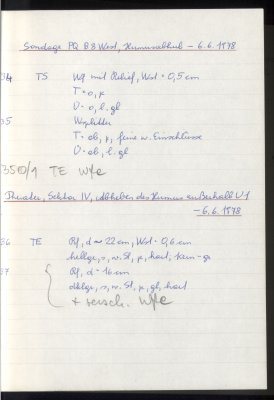 Sondage PQ 88 West, Humusabhub – 6.6.1978
34 TS Wg mit Relief, Wst = 0,5 cm
T = o, p
Ü = o, l. gl
35 Wsplitter
T = ob, p, feine w. Einschlüsse
Ü = ob, l. gl
3510/1 TE Wfe
Theater, Sektor IV, Abheben des Humus außerhalb U1
– 6.6.1978
36 TE Rf, d ~ 22 cm, Wst = 0,6 cm
hellgr, s, w. St, p, hart,
37 Rf, d = 16 cm
dklgr, s, w. St, p, gl, hart
+ versch. Wfe